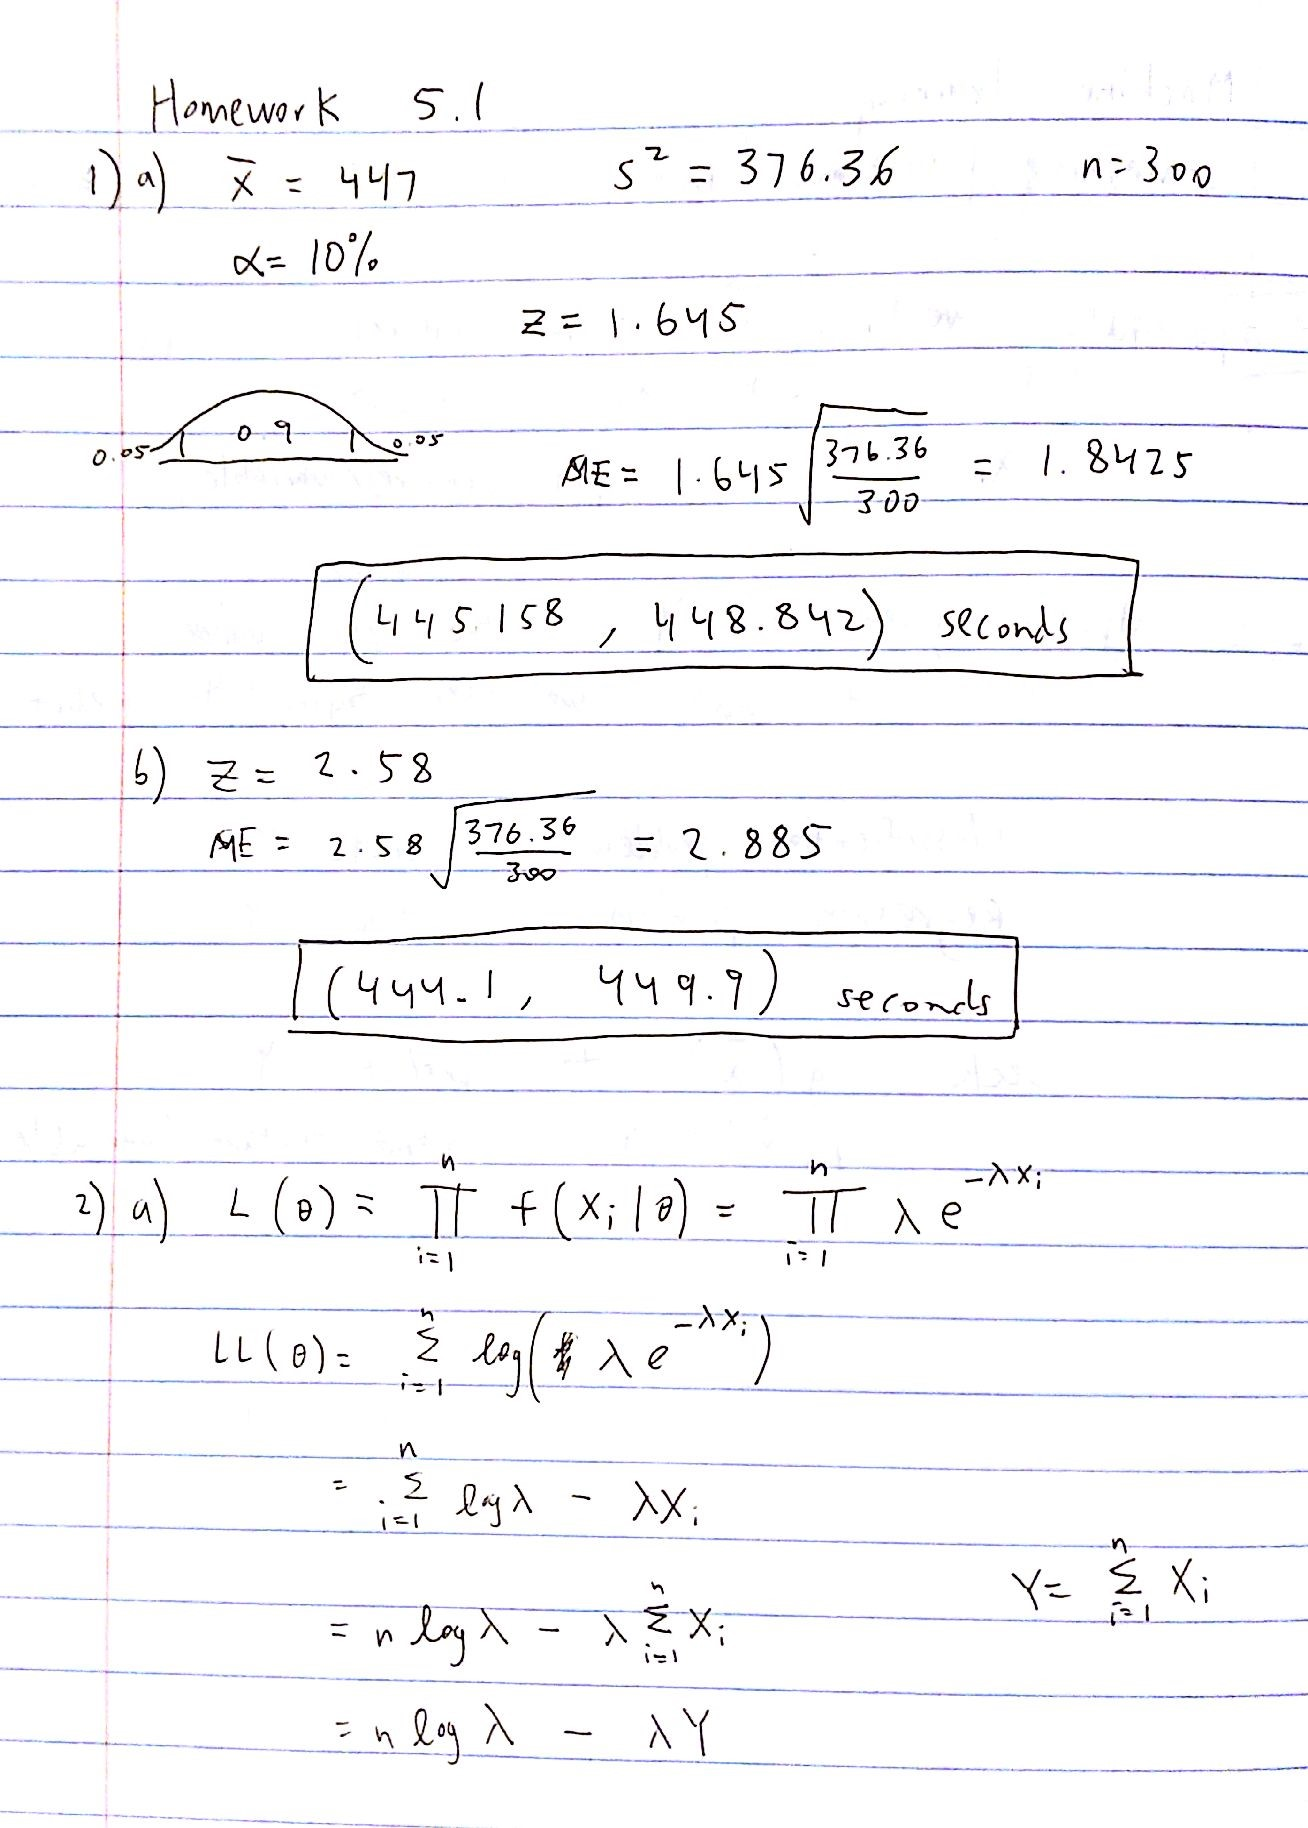 Homework 5.1
1) a) x̄ = 447 s² = 376.36 n=300
α= 10%
z = 1.645
0.05 0.9 0.05
ME = 1.645 √(376.36/300) = 1.8425
(445.158, 448.842) seconds
b) z = 2.58
ME = 2.58 √(376.36/300) = 2.885
(444.1, 449.9) seconds
2) a) L(θ) = ∏_{i=1}^{n} f(X_i|θ) = ∏_{i=1}^{n} λe^{-λX_i}
LL(θ) = Σ_{i=1}^{n} log(λe^{-λX_i})
= Σ_{i=1}^{n} logλ - λX_i
Y = Σ_{i=1}^{n} X_i
= n logλ - λ Σ_{i=1}^{n} X_i
= n log λ - λY